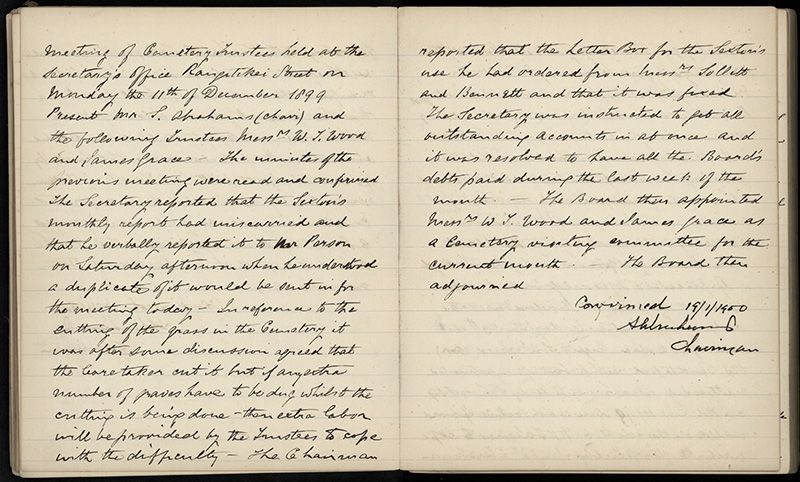 meeting of Cemetery Trustees held at the
Secretary's Office Rangitikei Street on
Monday the 11th of December 1899
Present Mr. S. Abrahams (chair) and
the following Trustees Messrs W. T. Wood
and James Grace – The minutes of the
previous meeting were read and confirmed
The Secretary reported that the Sexton's
monthly report had miscarried and
that he verbally reported it to Mr Person
on Saturday afternoon when he understood
a duplicate of it would be sent in for
the meeting today – In reference to the
cutting of the grass in the Cemetery it
was after some discussion agreed that
the Caretaker cut it but if any extra
number of graves have to be dug whilst the
cutting is being done – then extra labor
will be provided by the Trustees to cope
with the difficulty – The Chairman
reported that the Letter Box for the Sexton's
use he had ordered from Messrs Sollitt
and Bennett and that it was fixed
The Secretary was instructed to get all
outstanding accounts in at once and
it was resolved to have all the Board's
debts paid during the last week of the
month. – The Board then appointed
Messrs W T. Wood and James Grace as
a Cemetery visiting committee for the
current month. – The Board then
adjourned
Confirmed 19/1/1900
Chairman